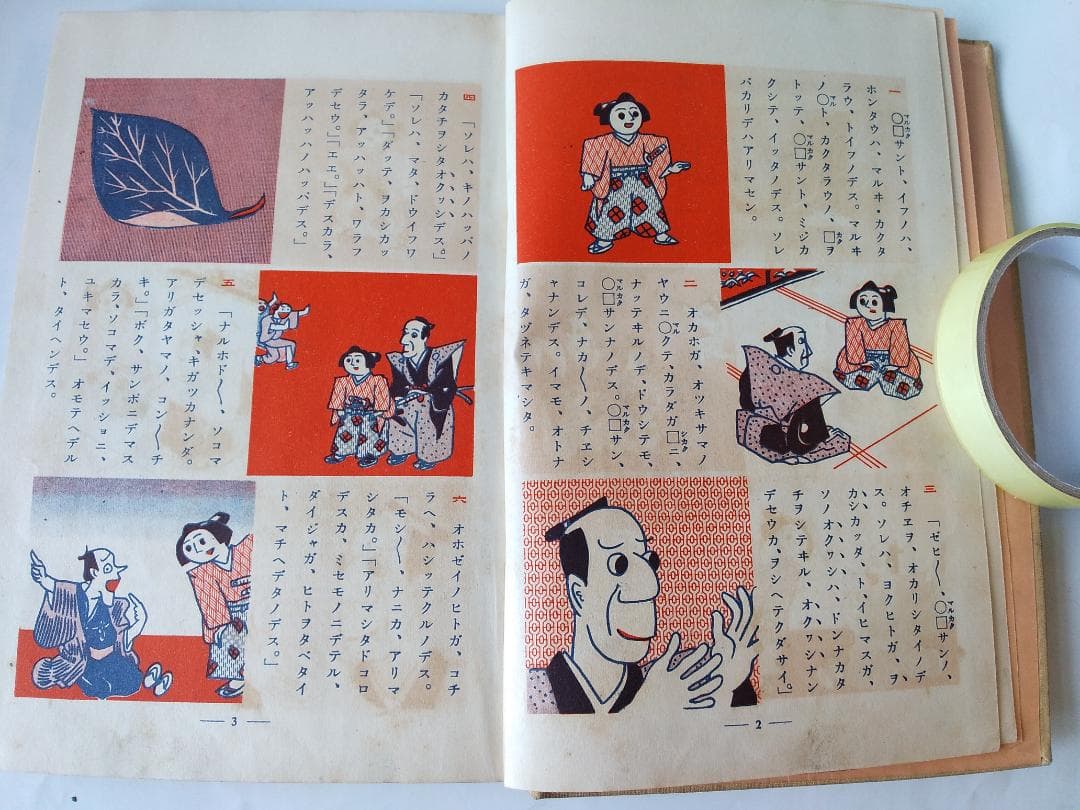 一
マルカク
○□サント、イフノハ、
ホンタウハ、マルヰ・カクタ
ラウ、トイフノデス。マルヰ
マル カク
ノ○ト、カクタラウノ、□ヲ
マルカク
トッテ、○□サント、ミジカ
クシテ、イッタノデス。ソレ
バカリデハアリマセン。
二 オカホガ、オツキサマノ
マル シカク
ヤウニ○クテ、カラダガ□ニ、
ナッテヰルノデ、ドウシテモ、
マルカク マルカク
○□サンナノデス。○□サン、
コレデ、ナカ〳〵ノ、チヱシ
ャナンデス。イマモ、オトナ
ガ、タヅネテキマシタ。
マルカク
三 「ゼヒ〳〵、○□サンノ、
オチヱヲ、オカリシタイノデ
ス。ソレハ、ヨクヒトガ、ヲ
カシカッタ、ト、イヒマスガ、
ソノオクワシハ、ドンナカタ
チヲシテヰル、オクワシナン
デセウカ、ヲシヘテクダサイ。」
2
四 「ソレハ、キノハッパノ
カタチヲシタオクッシデス。」
「ソレハ、マタ、ドウイフワ
ケデ。」「ダッテ、ヲカシカッ
タラ、アッハッハト、ワラフ
デセウ。」「エエ。」「デスカラ、
アッハッハノハッパデス。」
五 「ナルホド〳〵、ソコマ
デセッシャ、キガツカナンダ。
アリガタヤマノ、コン〳〵チ
キ。」「ボク、サンポニデマス
カラ、ソコマデ、イッショニ、
ユキマセウ。」オモテヘデル
ト、タイヘンデス。
六 オホゼイノヒトガ、コチ
ラヘ、ハシッテクルノデス。
「モシ〳〵、ナニカ、アリマ
シタカ。」「アリマシタドコロ
デスカ、ミセモノニデテル、
ダイジャガ、ヒトヲタベタイ
ト、マチヘデタノデス。」
3